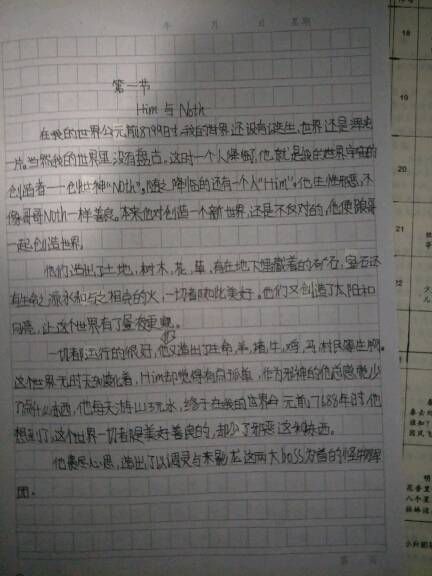 年 月 日 星期
第一节
Him 与 Noth
在我的世界公元前8799年时,我的世界还没有诞生,世界还是浑沌
一片。当然我的世界里没有盘古。这时一个人降临了,他就是我的世界宇宙的
创造者——创世神“Noth”。随之降临的还有一个人“Him”。他生性邪恶,不
像哥哥Noth一样善良。本来他对创造一个新世界,还是不反对的,他便跟哥
一起创造世界。
他们造出了土地,树木,花,草,有在地下埋藏着的矿石,宝石还
有生命之源水和与之相克的火,一切都如此美好。他们又创造了太阳和
月亮,让这个世界有了昼夜更替。
一切都运行的很好,他又造出了生命,羊,猪,牛,鸡,马,村民等生物。
这个世界无时无刻变化着,Him却觉得有点孤单,作为邪神的他总感觉少
了点什么东西,他每天游山玩水,终于在我的世界公元前7688年时他
想到了,这个世界一切都是美好善良的,却少了邪恶这种东西。
他费尽心思,造出了以凋灵与末影龙这两大boss为首的怪物军
团。
18
19
20
21
22